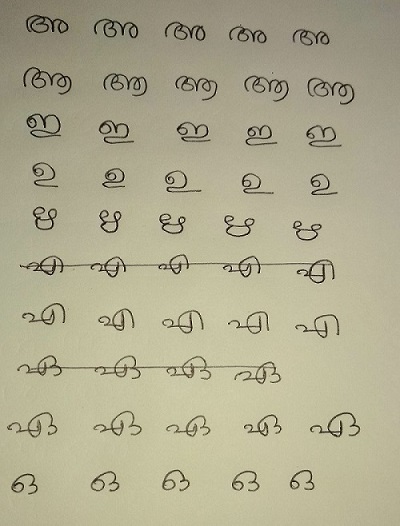 അ അ അ അ അ
ആ ആ ആ ആ ആ
ഇ ഇ ഇ ഇ ഇ
ഉ ഉ ഉ ഉ ഉ
ഋ ഋ ഋ ഋ ഋ
എ എ എ എ എ
എ എ എ എ എ
ഏ ഏ ഏ ഏ
ഏ ഏ ഏ ഏ ഏ
ഒ ഒ ഒ ഒ ഒ